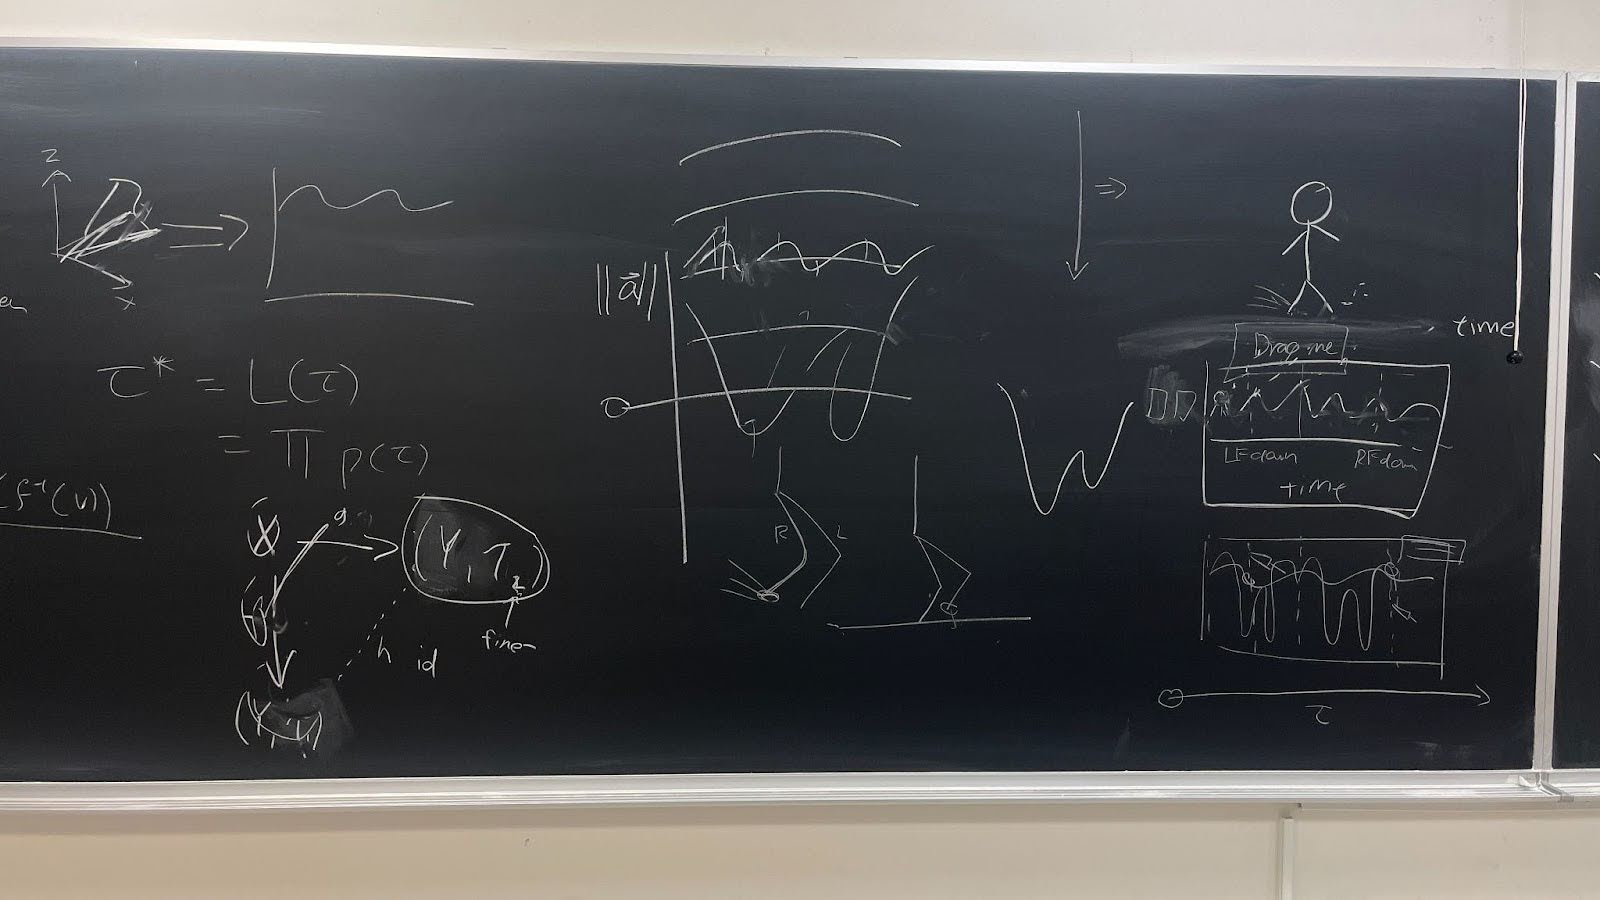 z
x
τ* = L(τ)
= Π p(τ)
(f⁻¹(v))
g
(Y, T
h id
finer
||a⃗||
R L
⇒
time
Drag me
LF down RF down
time
τ